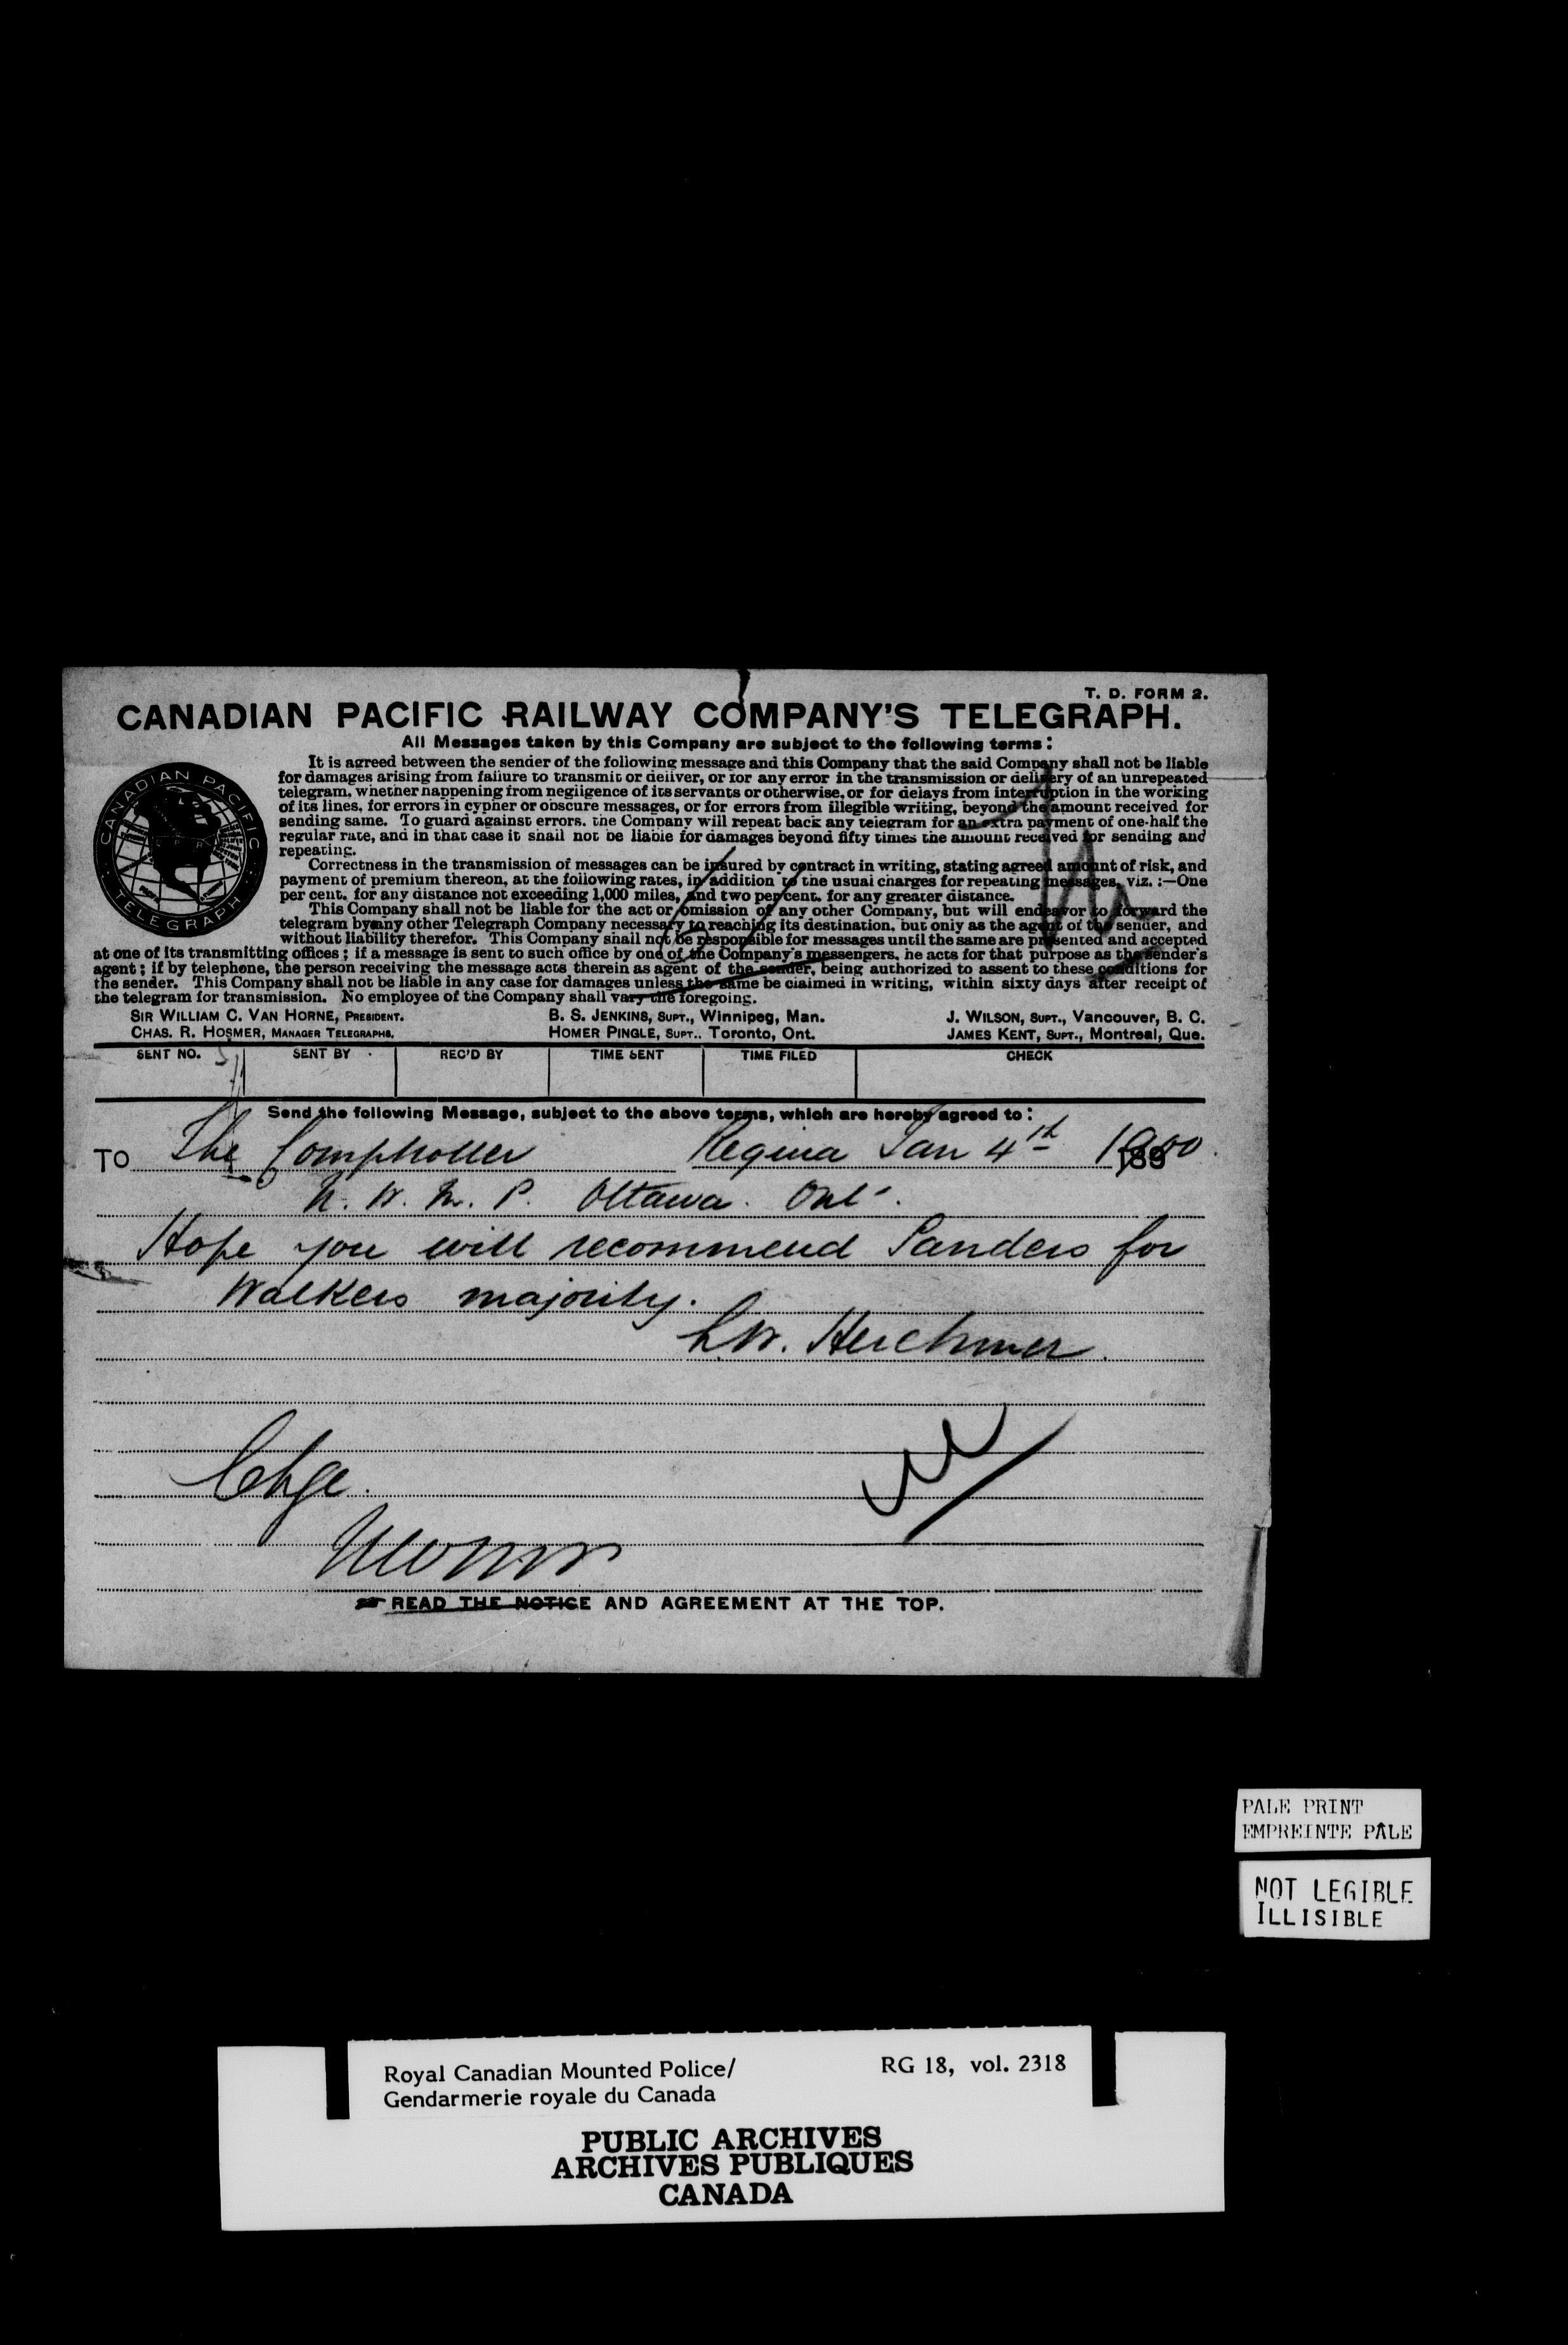 T. D. FORM 2.
CANADIAN PACIFIC RAILWAY COMPANY'S TELEGRAPH.
All Messages taken by this Company are subject to the following terms:
CANADIAN PACIFIC TELEGRAPH
It is agreed between the sender of the following message and this Company that the said Company shall not be liable
for damages arising from failure to transmit or deliver, or for any error in the transmission or delivery of an unrepeated
telegram, whether happening from negligence of its servants or otherwise, or for delays from interruption in the working
of its lines, for errors in cypher or obscure messages, or for errors from illegible writing, beyond the amount received for
sending same. To guard against errors, the Company will repeat back any telegram for an extra payment of one-half the
regular rate, and in that case it shall not be liable for damages beyond fifty times the amount received for sending and
repeating.
Correctness in the transmission of messages can be insured by contract in writing, stating agreed amount of risk, and
payment of premium thereon, at the following rates, in addition to the usual charges for repeating messages, viz. :—One
per cent. for any distance not exceeding 1,000 miles, and two per cent. for any greater distance.
This Company shall not be liable for the act or omission of any other Company, but will endeavor to forward the
telegram by any other Telegraph Company necessary to reaching its destination, but only as the agent of the sender, and
without liability therefor. This Company shall not be responsible for messages until the same are presented and accepted
at one of its transmitting offices ; if a message is sent to such office by one of the Company's messengers, he acts for that purpose as the sender's
agent ; if by telephone, the person receiving the message acts therein as agent of the sender, being authorized to assent to these conditions for
the sender. This Company shall not be liable in any case for damages unless the same be claimed in writing, within sixty days after receipt of
the telegram for transmission. No employee of the Company shall vary the foregoing.
SIR WILLIAM C. VAN HORNE, PRESIDENT. B. S. JENKINS, SUPT., Winnipeg, Man. J. WILSON, SUPT., Vancouver, B. C.
CHAS. R. HOSMER, MANAGER TELEGRAPHS. HOMER PINGLE, SUPT.. Toronto, Ont. JAMES KENT, SUPT., Montreal, Que.
SENT NO. SENT BY REC'D BY TIME SENT TIME FILED CHECK
Send the following Message, subject to the above terms, which are hereby agreed to:
TO The Comptroller Regina Jan 4th 1900
N. W. M. P. Ottawa. Ont.
Hope you will recommend Sanders for
Walkers majority.
L.W. Herchmer.
Chge.
READ THE NOTICE AND AGREEMENT AT THE TOP.
PALE PRINT
EMPREINTE PÂLE
NOT LEGIBLE
ILLISIBLE
Royal Canadian Mounted Police/ RG 18, vol. 2318
Gendarmerie royale du Canada
PUBLIC ARCHIVES
ARCHIVES PUBLIQUES
CANADA